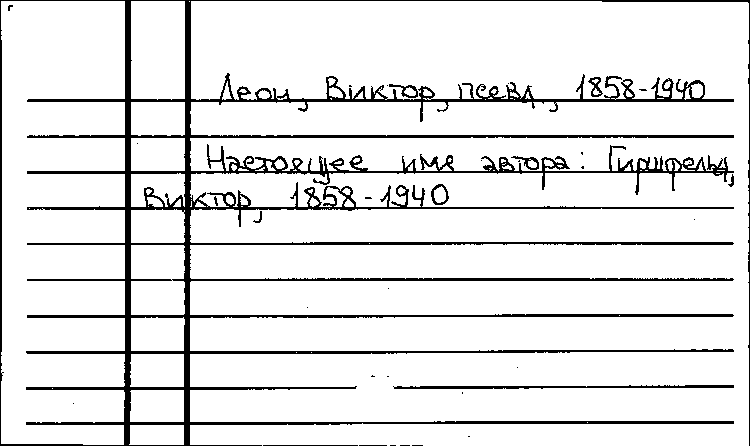 Леон, Виктор, псевд., 1858-1940
Настоящее имя автора: Гиршфельд,
Виктор, 1858-1940